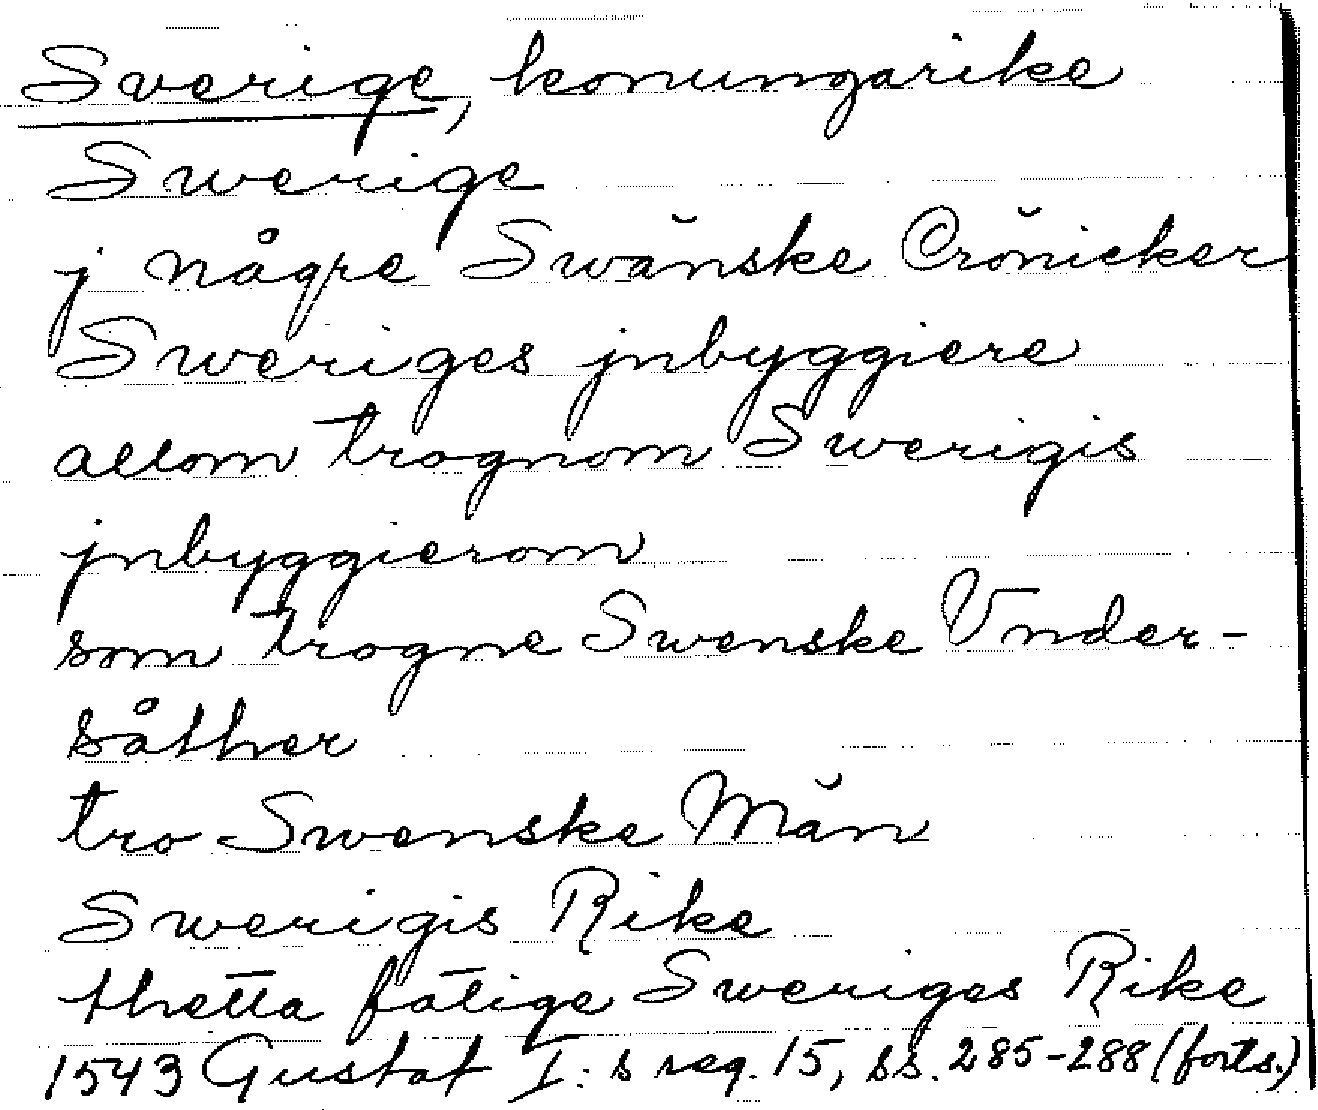 Sverige, konungarike
Swerige
j någre Swänske Crönicker
Sweriges jnbyggiere
allom trognom Swerigis
jnbyggierom
som trogne Swenske Vnder-
såther
tro Swenske Män
Swerigis Rike
thetta fatige Sweriges Rike
1543 Gustaf I:s reg. 15, ss. 285-288 (forts.)